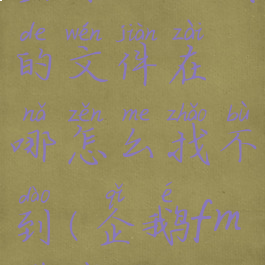 de wén jiàn zài
的文件在
nǎ zěn me zhǎo bù
哪怎么找不
dào qǐ é
到(企鹅fm